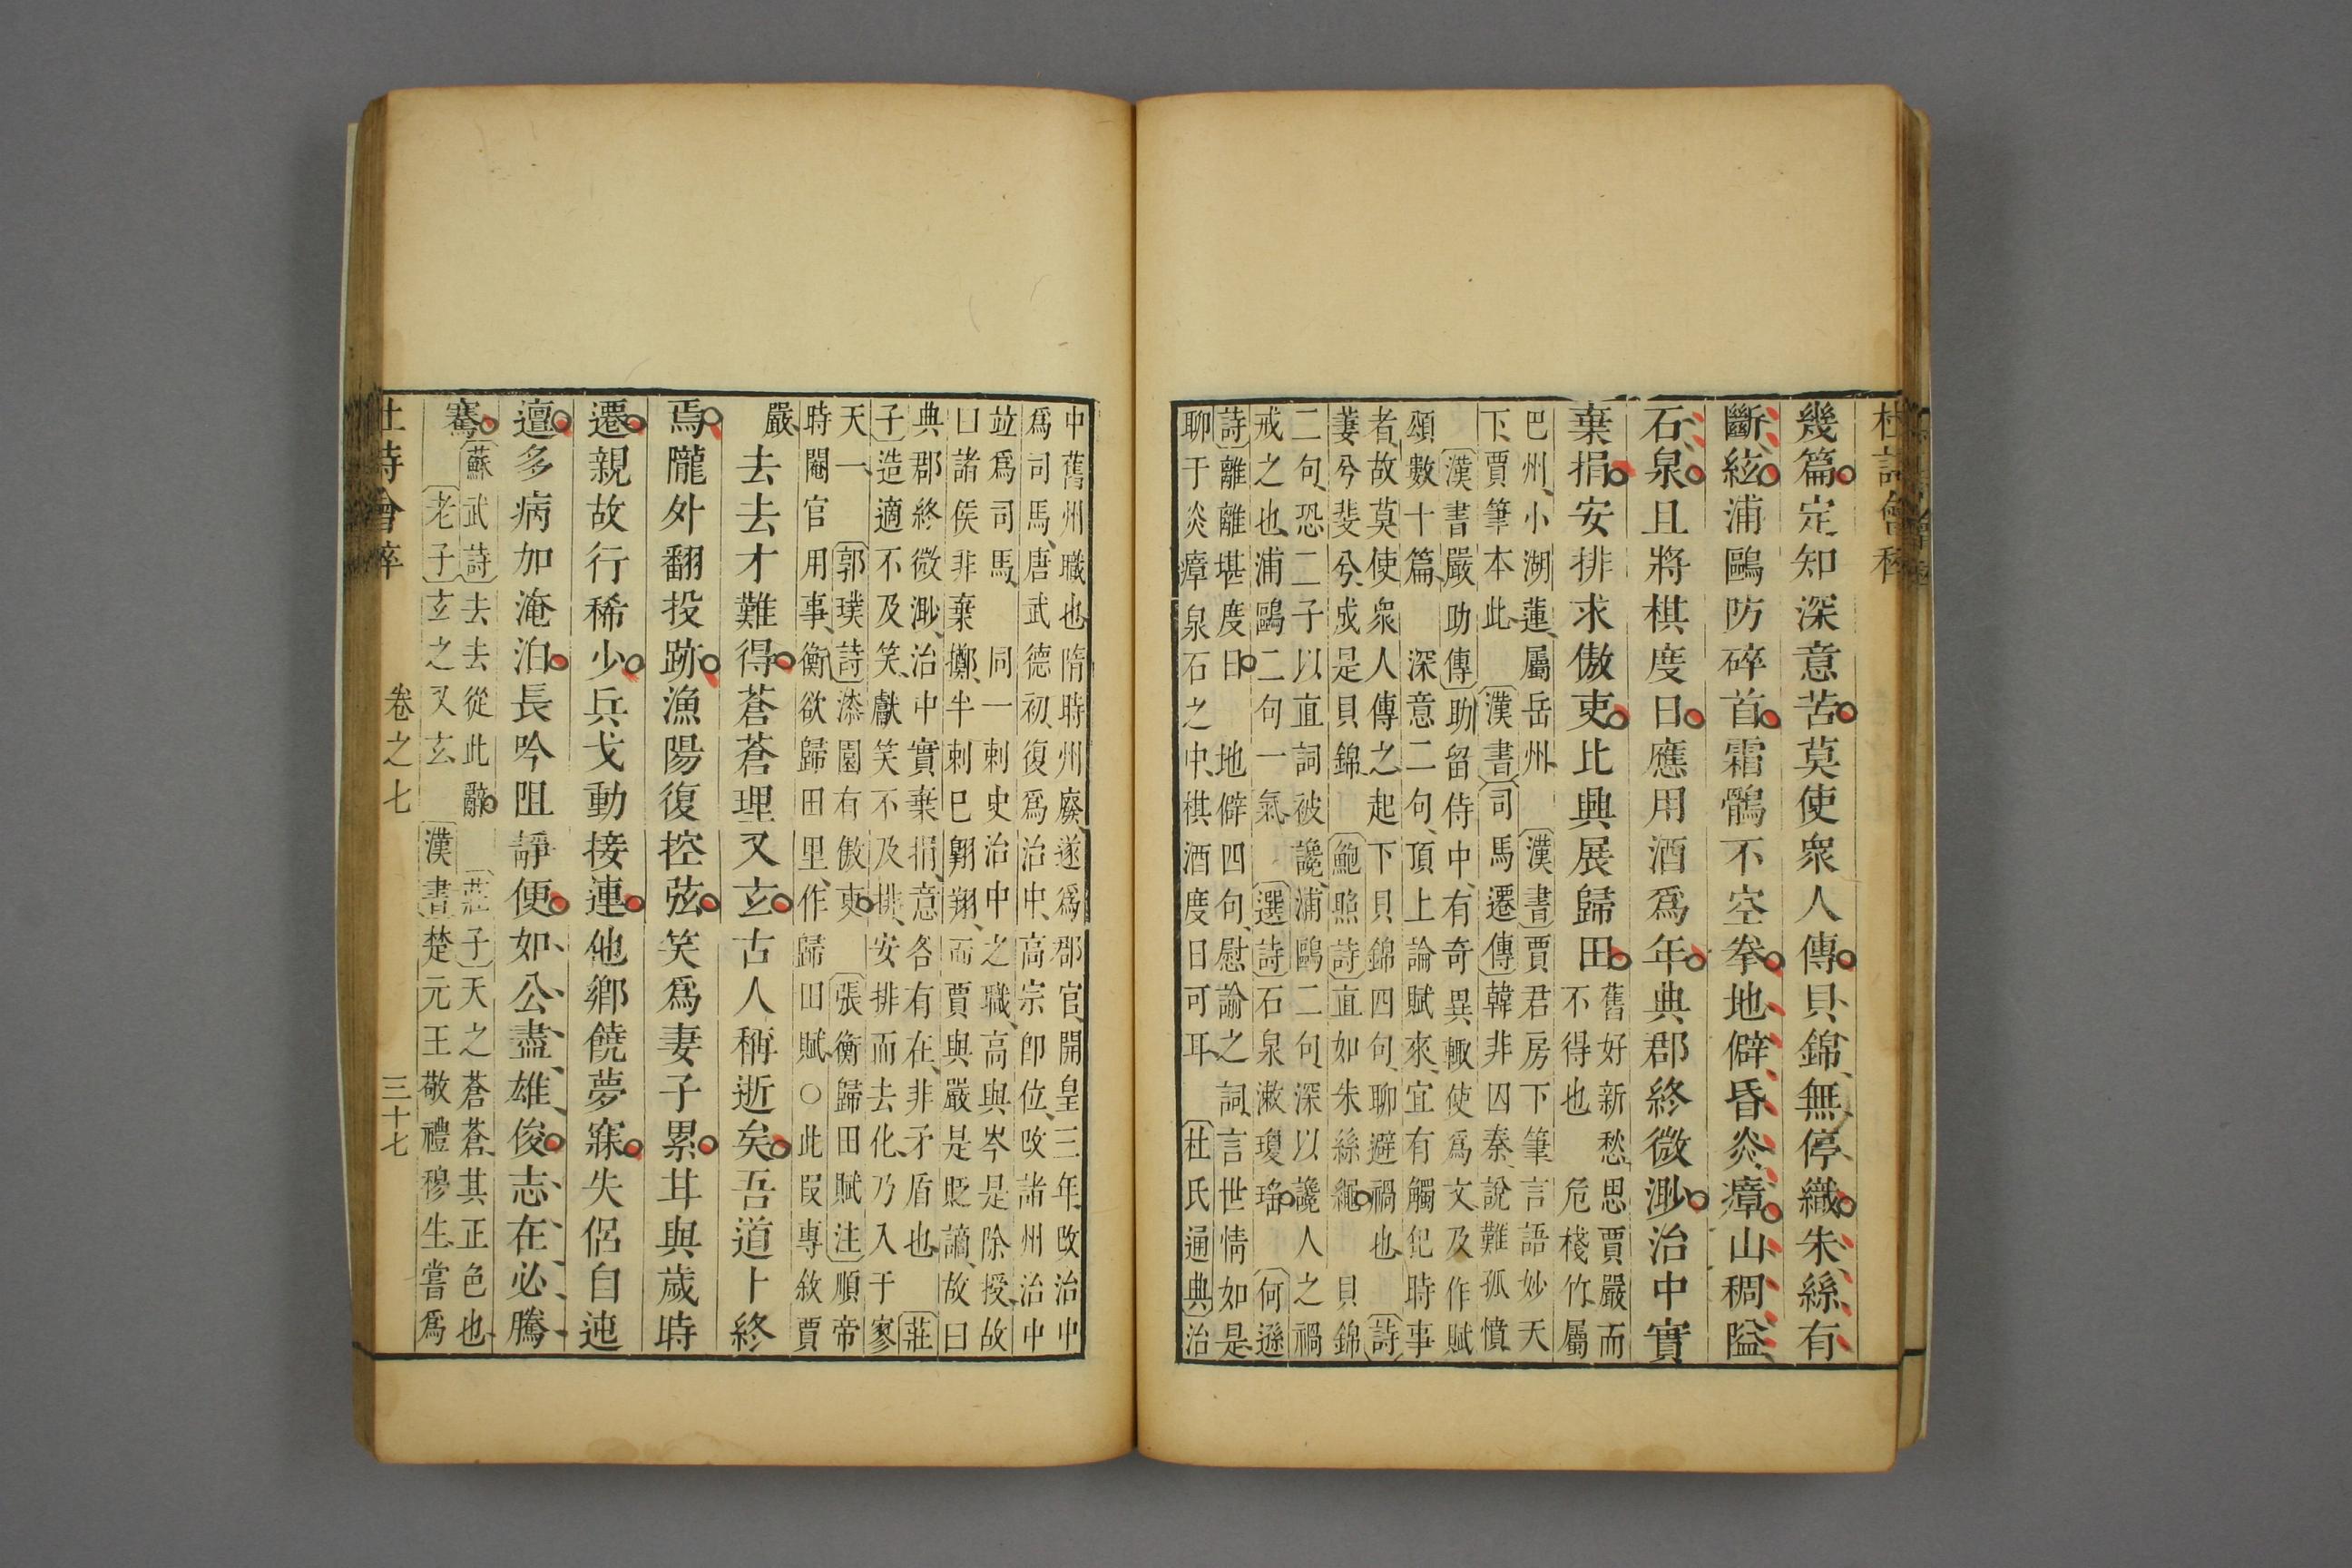 杜詩會稡
幾篇定知深意苦莫使衆人傳貝錦無停織朱絲有
斷絃浦鷗防碎首霜鶻不空拳地僻昏炎瘴山稠隘
石泉且將棋度日應用酒爲年典郡終微渺治中實
棄捐安排求傲吏比興展歸田
舊好新愁思賈嚴而
不得也 危棧竹屬
巴州小湖蓮屬岳州 漢書賈君房下筆言語妙天
下賈筆本此 漢書司馬遷傳韓非囚秦說難孤憤
漢書嚴助傳助留侍中有奇異輙使爲文及作賦
頌數十篇 深意二句頂上論賦來宜有觸犯時事
者故莫使衆人傳之起下貝錦四句聊避禍也 詩
萋兮斐兮成是貝錦 鮑照詩直如朱絲繩 貝錦
二句恐二子以直詞被讒浦鷗二句深以讒人之禍
戒之也浦鷗二句一氣 選詩石泉漱瓊瑤 何遜
詩離離堪度日 地僻四句慰諭之詞言世情如是
聊于炎瘴泉石之中棋酒度日可耳 杜氏通典治
中舊州職也隋時州廢遂爲郡官開皇三年改治中
爲司馬唐武德初復爲治中高宗即位改諸州治中
竝爲司馬 同一刺史治中之職高與岑是除授故
曰諸侯非棄擲半刺已翺翔而賈與嚴是貶謫故曰
典郡終微渺治中實棄捐意各有在非矛盾也 莊
子造適不及笑獻笑不及排安排而去化乃入于寥
天一 郭璞詩漆園有傲吏 張衡歸田賦注順帝
時閹官用事衡欲歸田里作歸田賦○此叚專敘賈
嚴
去去才難得蒼蒼理又玄古人稱逝矣吾道卜終
焉隴外翻投跡漁陽復控弦笑爲妻子累甘與歲時
遷親故行稀少兵戈動接連他鄉饒夢寐失侶自迍
邅多病加淹泊長吟阻靜便如公盡雄俊志在必騰
騫
蘇武詩去去從此辭 莊子天之蒼蒼其正色也
老子玄之又玄 漢書楚元王敬禮穆生嘗爲
杜詩會稡 卷之七 三十七